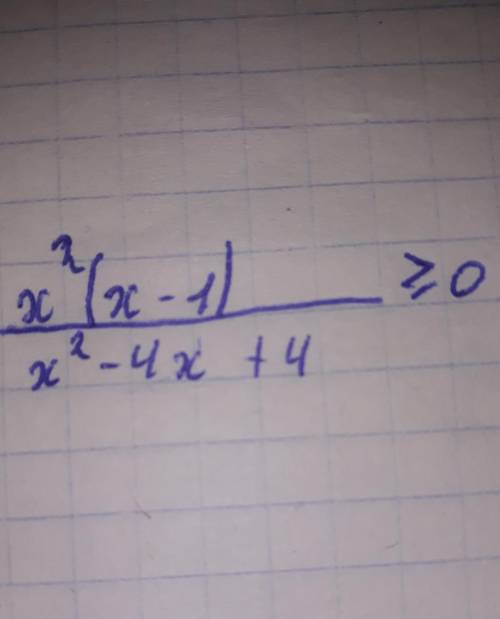 x²(x-1) ≥ 0
x²-4x+4